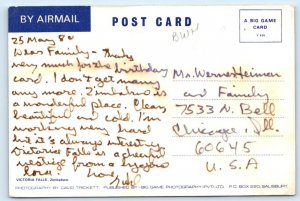 BY AIRMAIL
POST CARD
A BIG GAME
CARD
BWH
25 May 80
Dear Family - Thanks
very much for the birthday
card. I don't get many
any more. Zimbabwe is
a wonderful place. Clean,
beautiful and cold. I'm
working very hard
but it's always interesting.
Victoria Falls is a
vestige from a
love
Mr. Werner Heiman
and Family
7533 N. Bell
Chicago, Ill.
60645
U.S.A
VICTORIA FALLS, Zimbabwe
PHOTOGRAPHY BY DAVID TRICKETT. PUBLISHED BY BIG GAME PHOTOGRAPHIC (PVT) LTD. P.O. BOX 290, SALISBURY